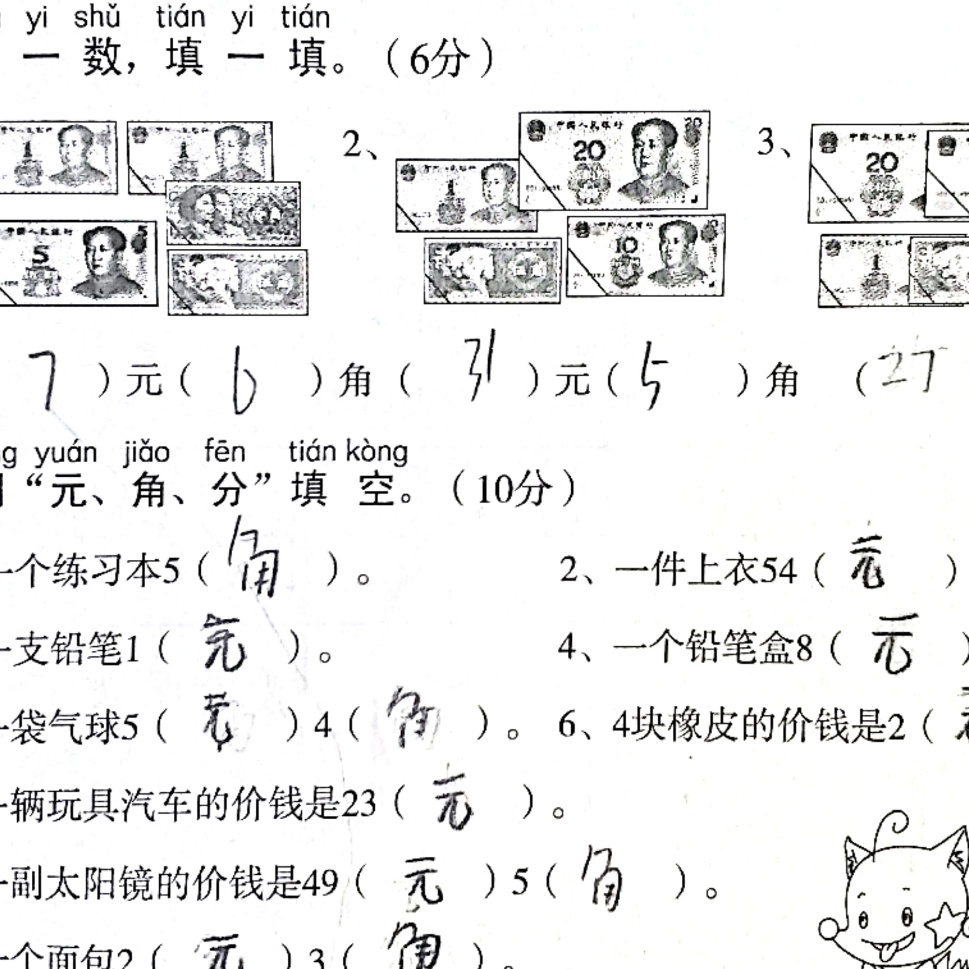 yi shǔ tián yi tián
一数，填一填。（6分）
2、
3、
中国人民银行
20
中国人民银行
20
1
1
1
5
中国人民银行
5
10
1
7）元（6）角（31）元（5）角（27
yuán jiǎo fēn tián kòng
“元、角、分”填空。（10分）
一个练习本5（角）。 2、一件上衣54（元）
一支铅笔1（元）。 4、一个铅笔盒8（元）
一袋气球5（元）4（角）。 6、4块橡皮的价钱是2（
一辆玩具汽车的价钱是23（元）。
一副太阳镜的价钱是49（元）5（角）。
一个面包2（元）3（角）。